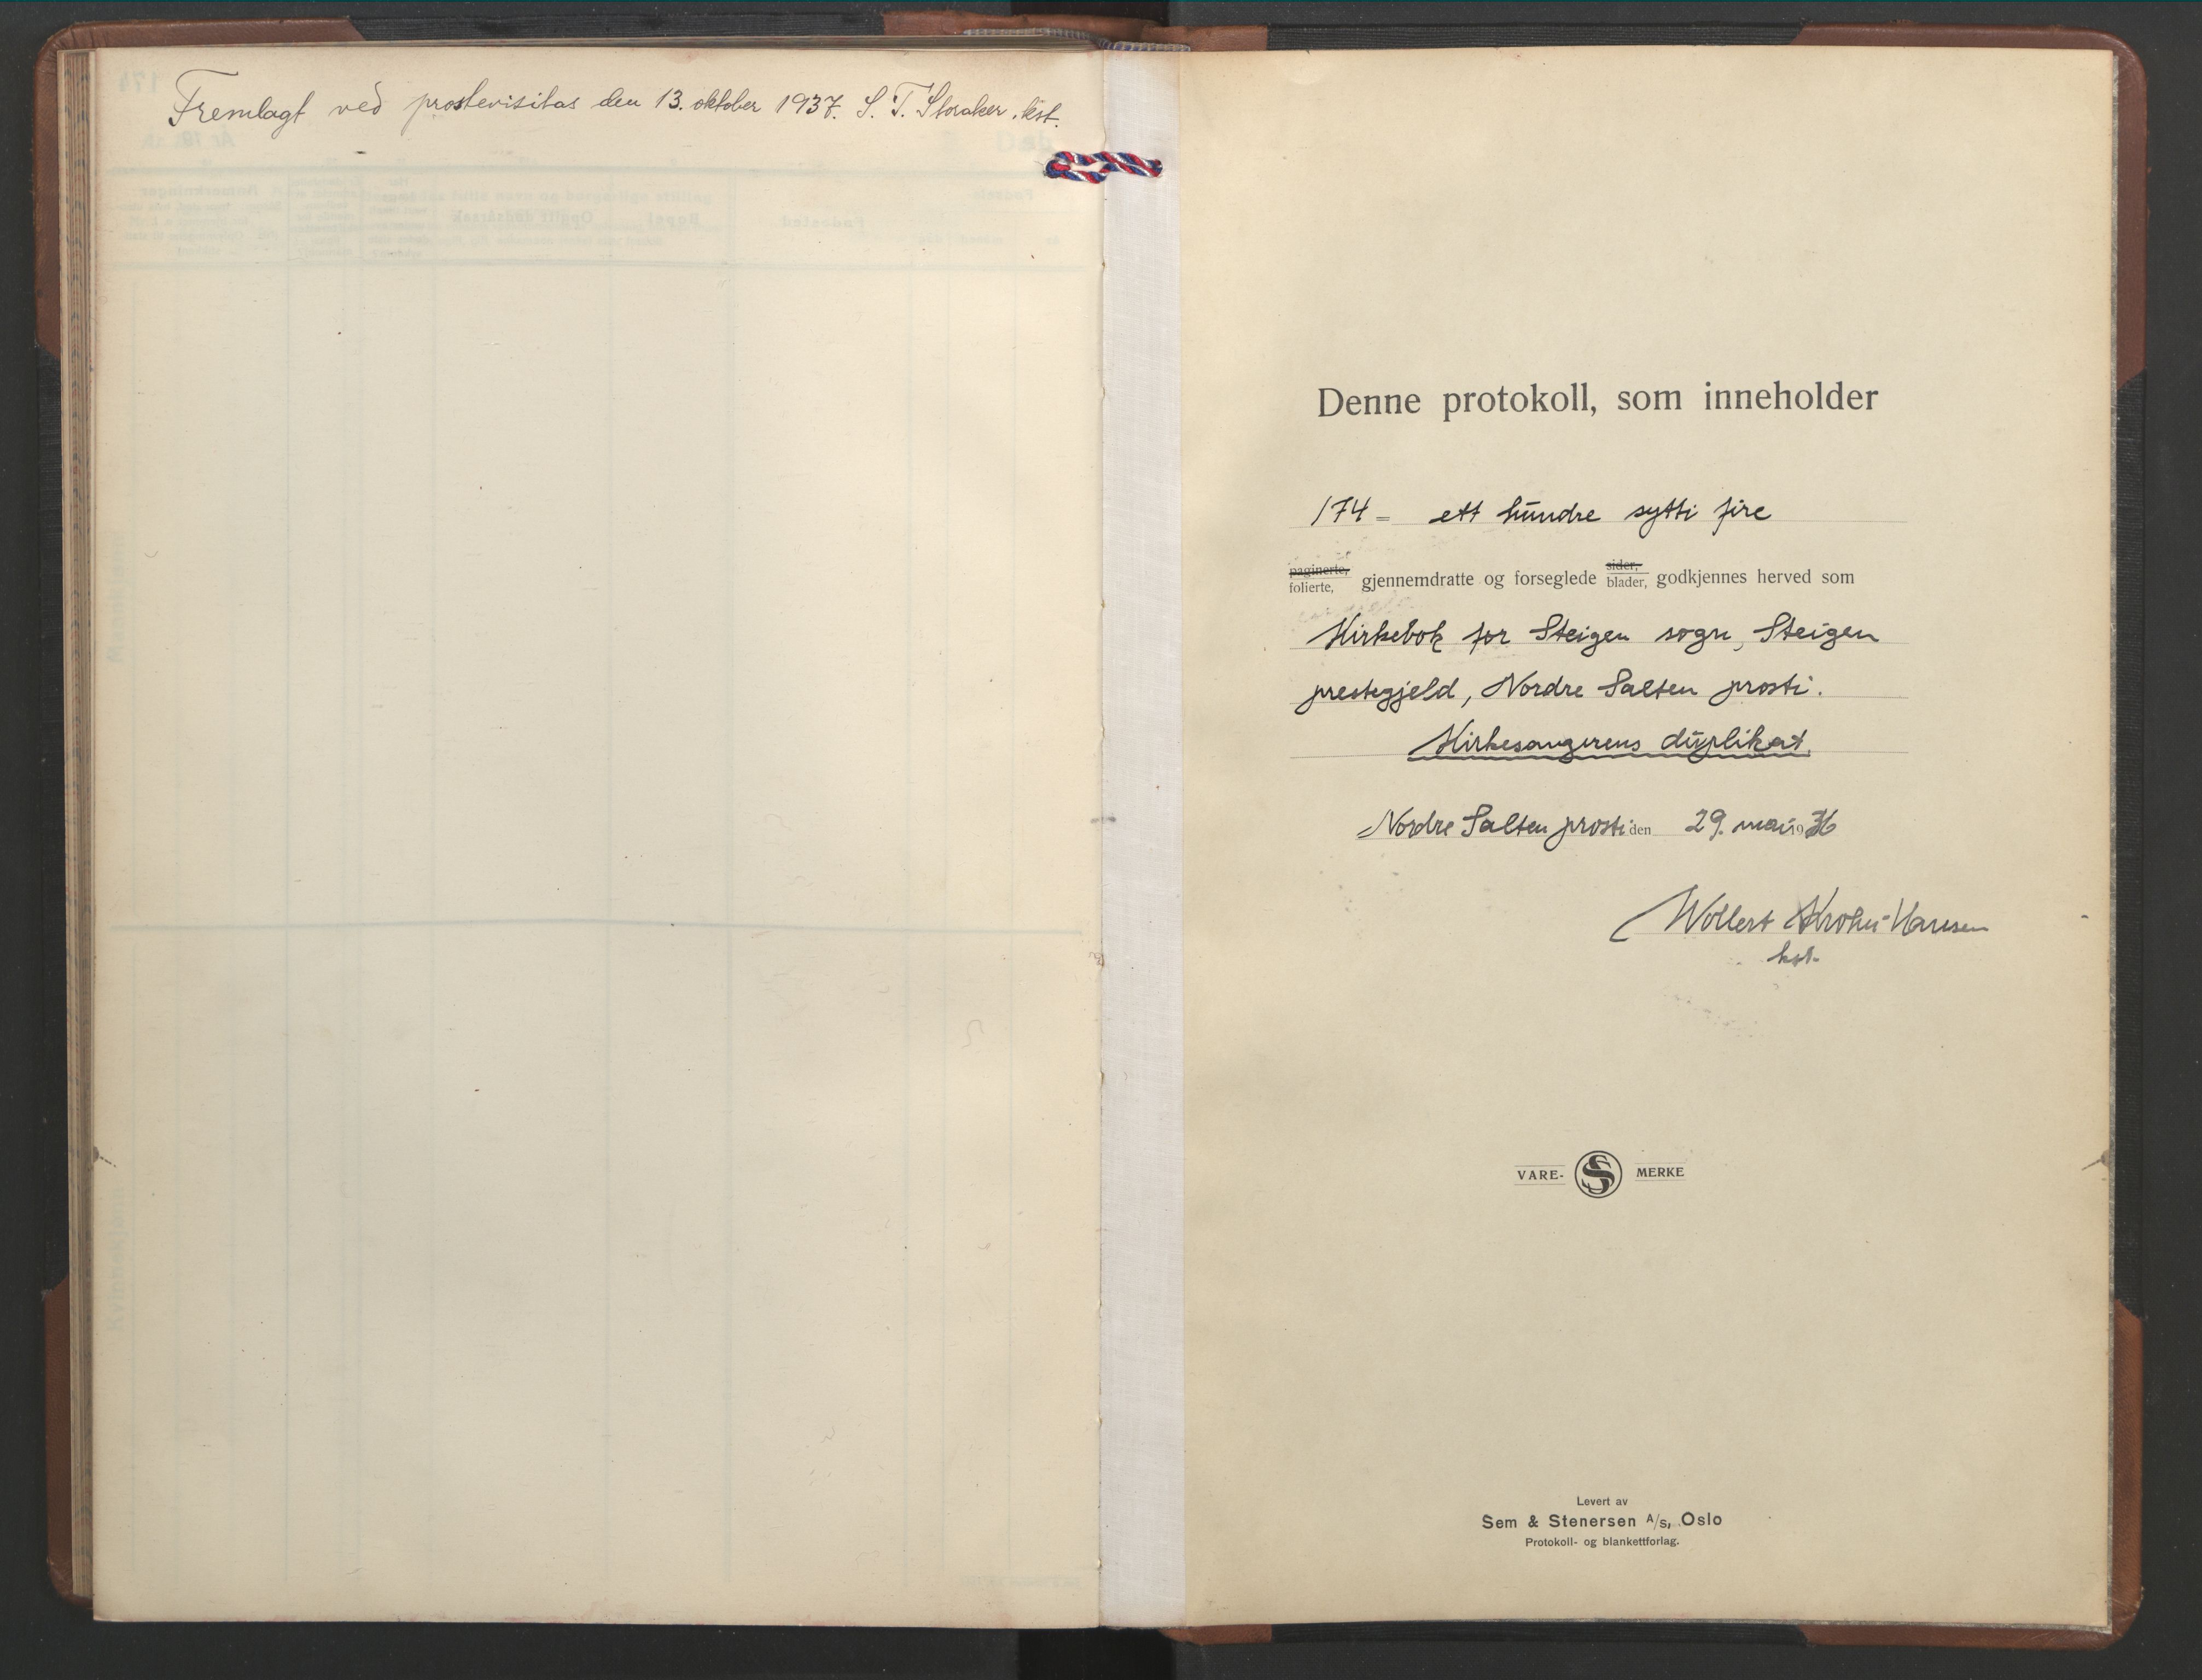 Fremlagt ved prostevisitas den 13. oktober 1937. S. T. Storaker. kst.
Denne protokoll, som inneholder
174 = ett hundre sytti fire
paginerte, folierte, gjennemdratte og forseglede sider, blader, godkjennes herved som
Kirkebok for Steigen sogn, Steigen
prestegjeld, Nordre Salten prosti.
Kirkesangerens duplikat.
Nordre Salten prosti den 29. mai 1936
Wollert Krohn-Hansen
kst.
VARE- SS MERKE
Levert av
Sem & Stenersen A/s, Oslo
Protokoll- og blankettforlag.